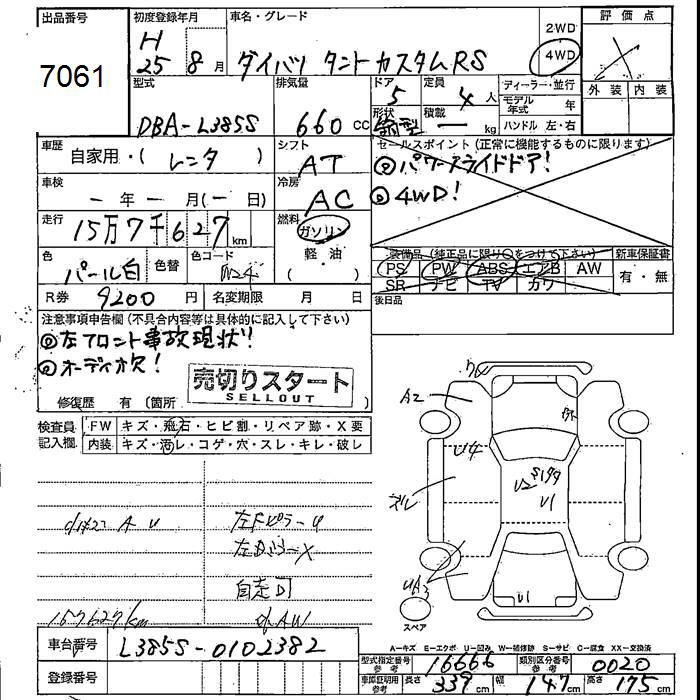 出品番号
7061
初度登録年月
H
25 8 月
車名・グレード
ダイハツ タント カスタムRS
2WD
4WD
評価点
外装 内装
型式
DBA-L385S
排気量
660 cc
ドア
5
形状
箱型
定員
4 人
積載
ー kg
ディーラー・並行
モデル年式 年
ハンドル 左・右
車歴
自家用・( レンタ )
シフト
AT
セールスポイント (正常に機能するものに限ります)
パワースライドドア!
4WD!
車検
ー 年 ー 月 (ー 日)
冷房
AC
走行
15万7千627 km
燃料
ガソリン
軽油
( )
色
パール白
色替
色コード
W24
装備品 (純正品に限り○をつけて下さい)
PS PW ABS エアB AW
SR ナビ TV カワ
新車保証書
有・無
後日品
R券 9200 円
名変期限 月 日
注意事項申告欄 (不具合内容等は具体的に記入して下さい)
左フロント事故現状!
オーディオ欠!
売切りスタート
SELLOUT
修復歴 有 (箇所 )
検査員記入欄
FW キズ・飛石・ヒビ割・リペア跡・X要
内装 キズ・汚レ・コゲ・穴・スレ・キレ・破レ
A U
左Fピラー U
X
自走可
157627km
AW
A2
U4
ズレ
U2
S199
U1
UA3
U1
スペア
A-キズ E-エクボ U-凹み W-補修跡 S-サビ C-腐食 XX-交換済
車台番号 L385S-0102382
登録番号
型式指定番号参考 16666
類別区分番号参考 0020
車庫証明用参考 長さ 339 cm 幅 147 cm 高さ 175 cm